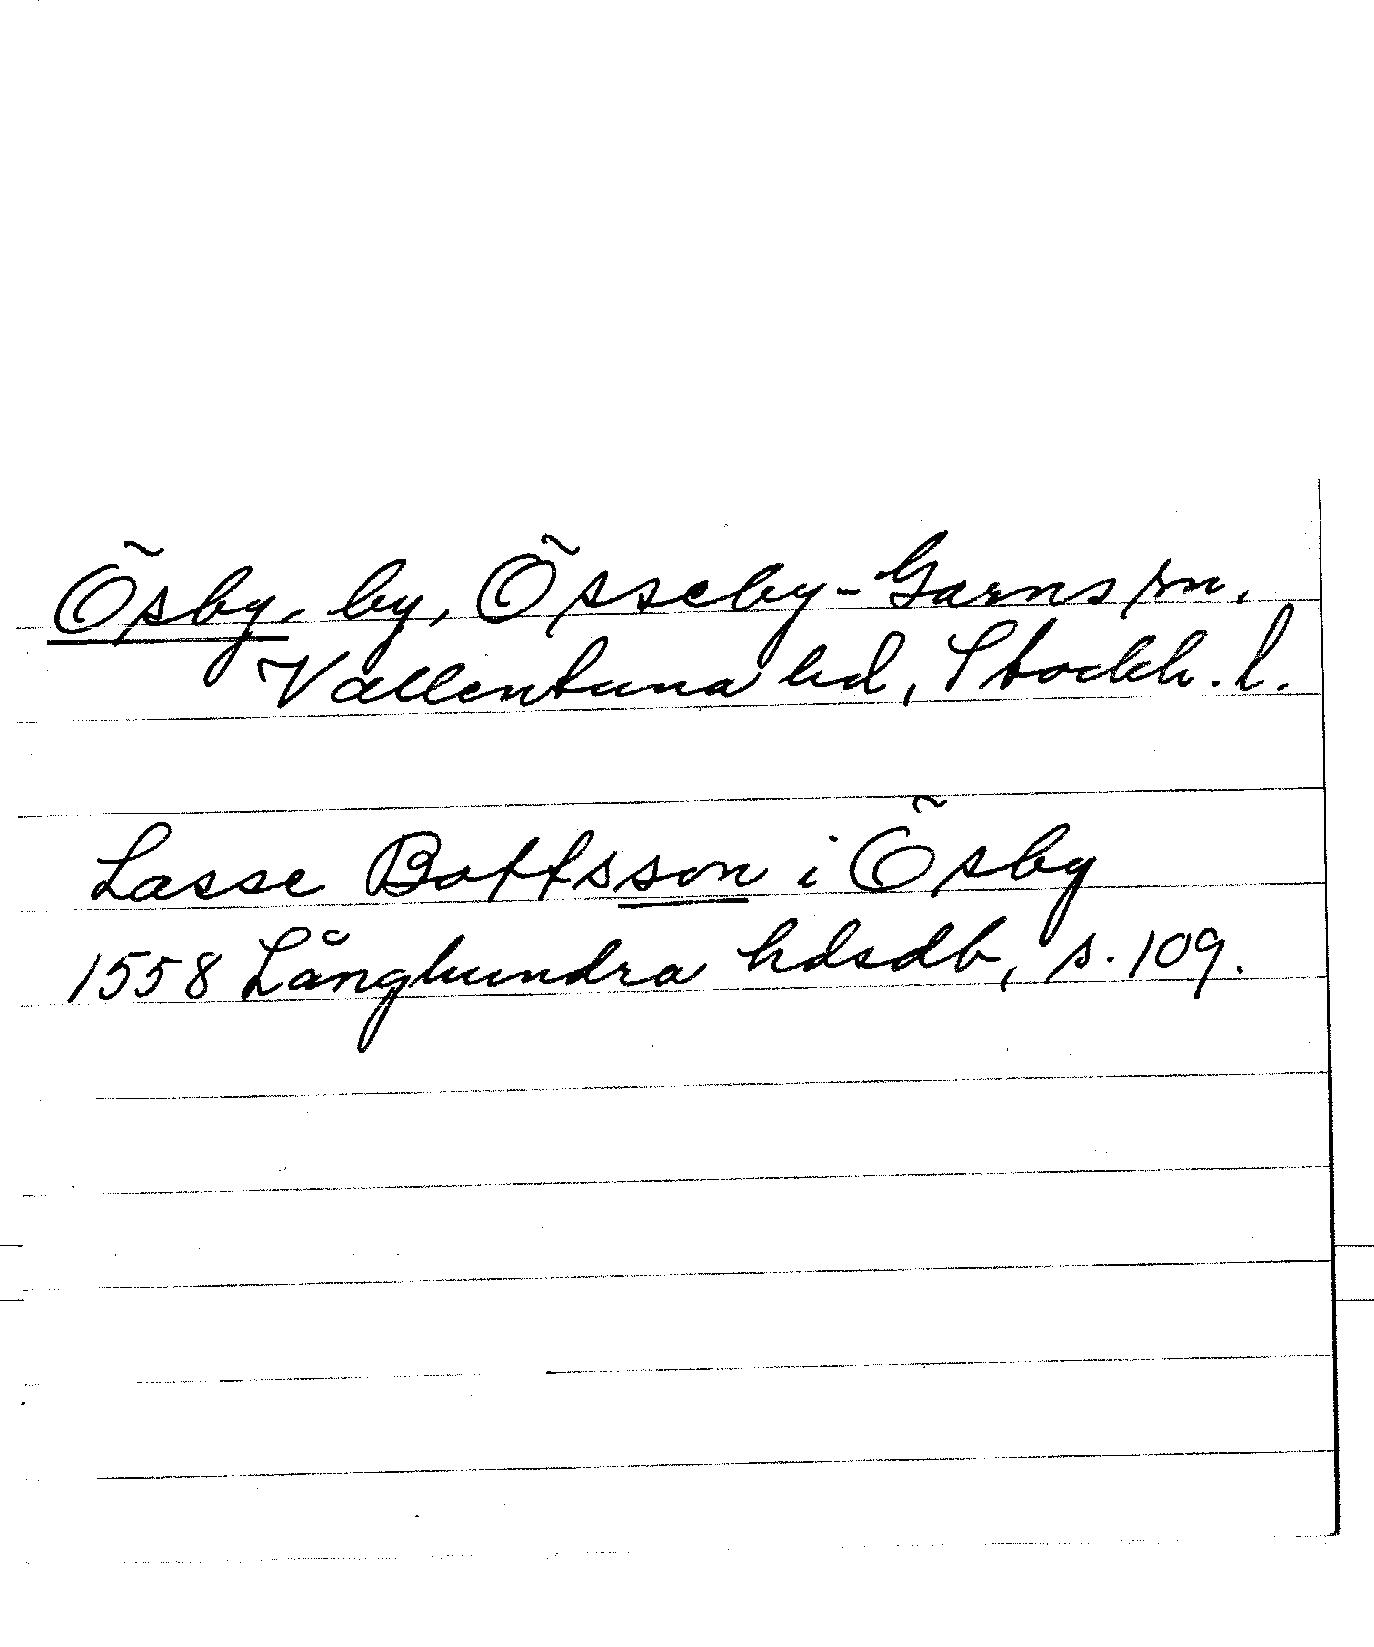 Ösby, by, Össeby-Garns sn.
Vallentuna hd, Stockh. l.
Lasse Boffsson i Ösby
1558 Långhundra hdsdb, s. 109.